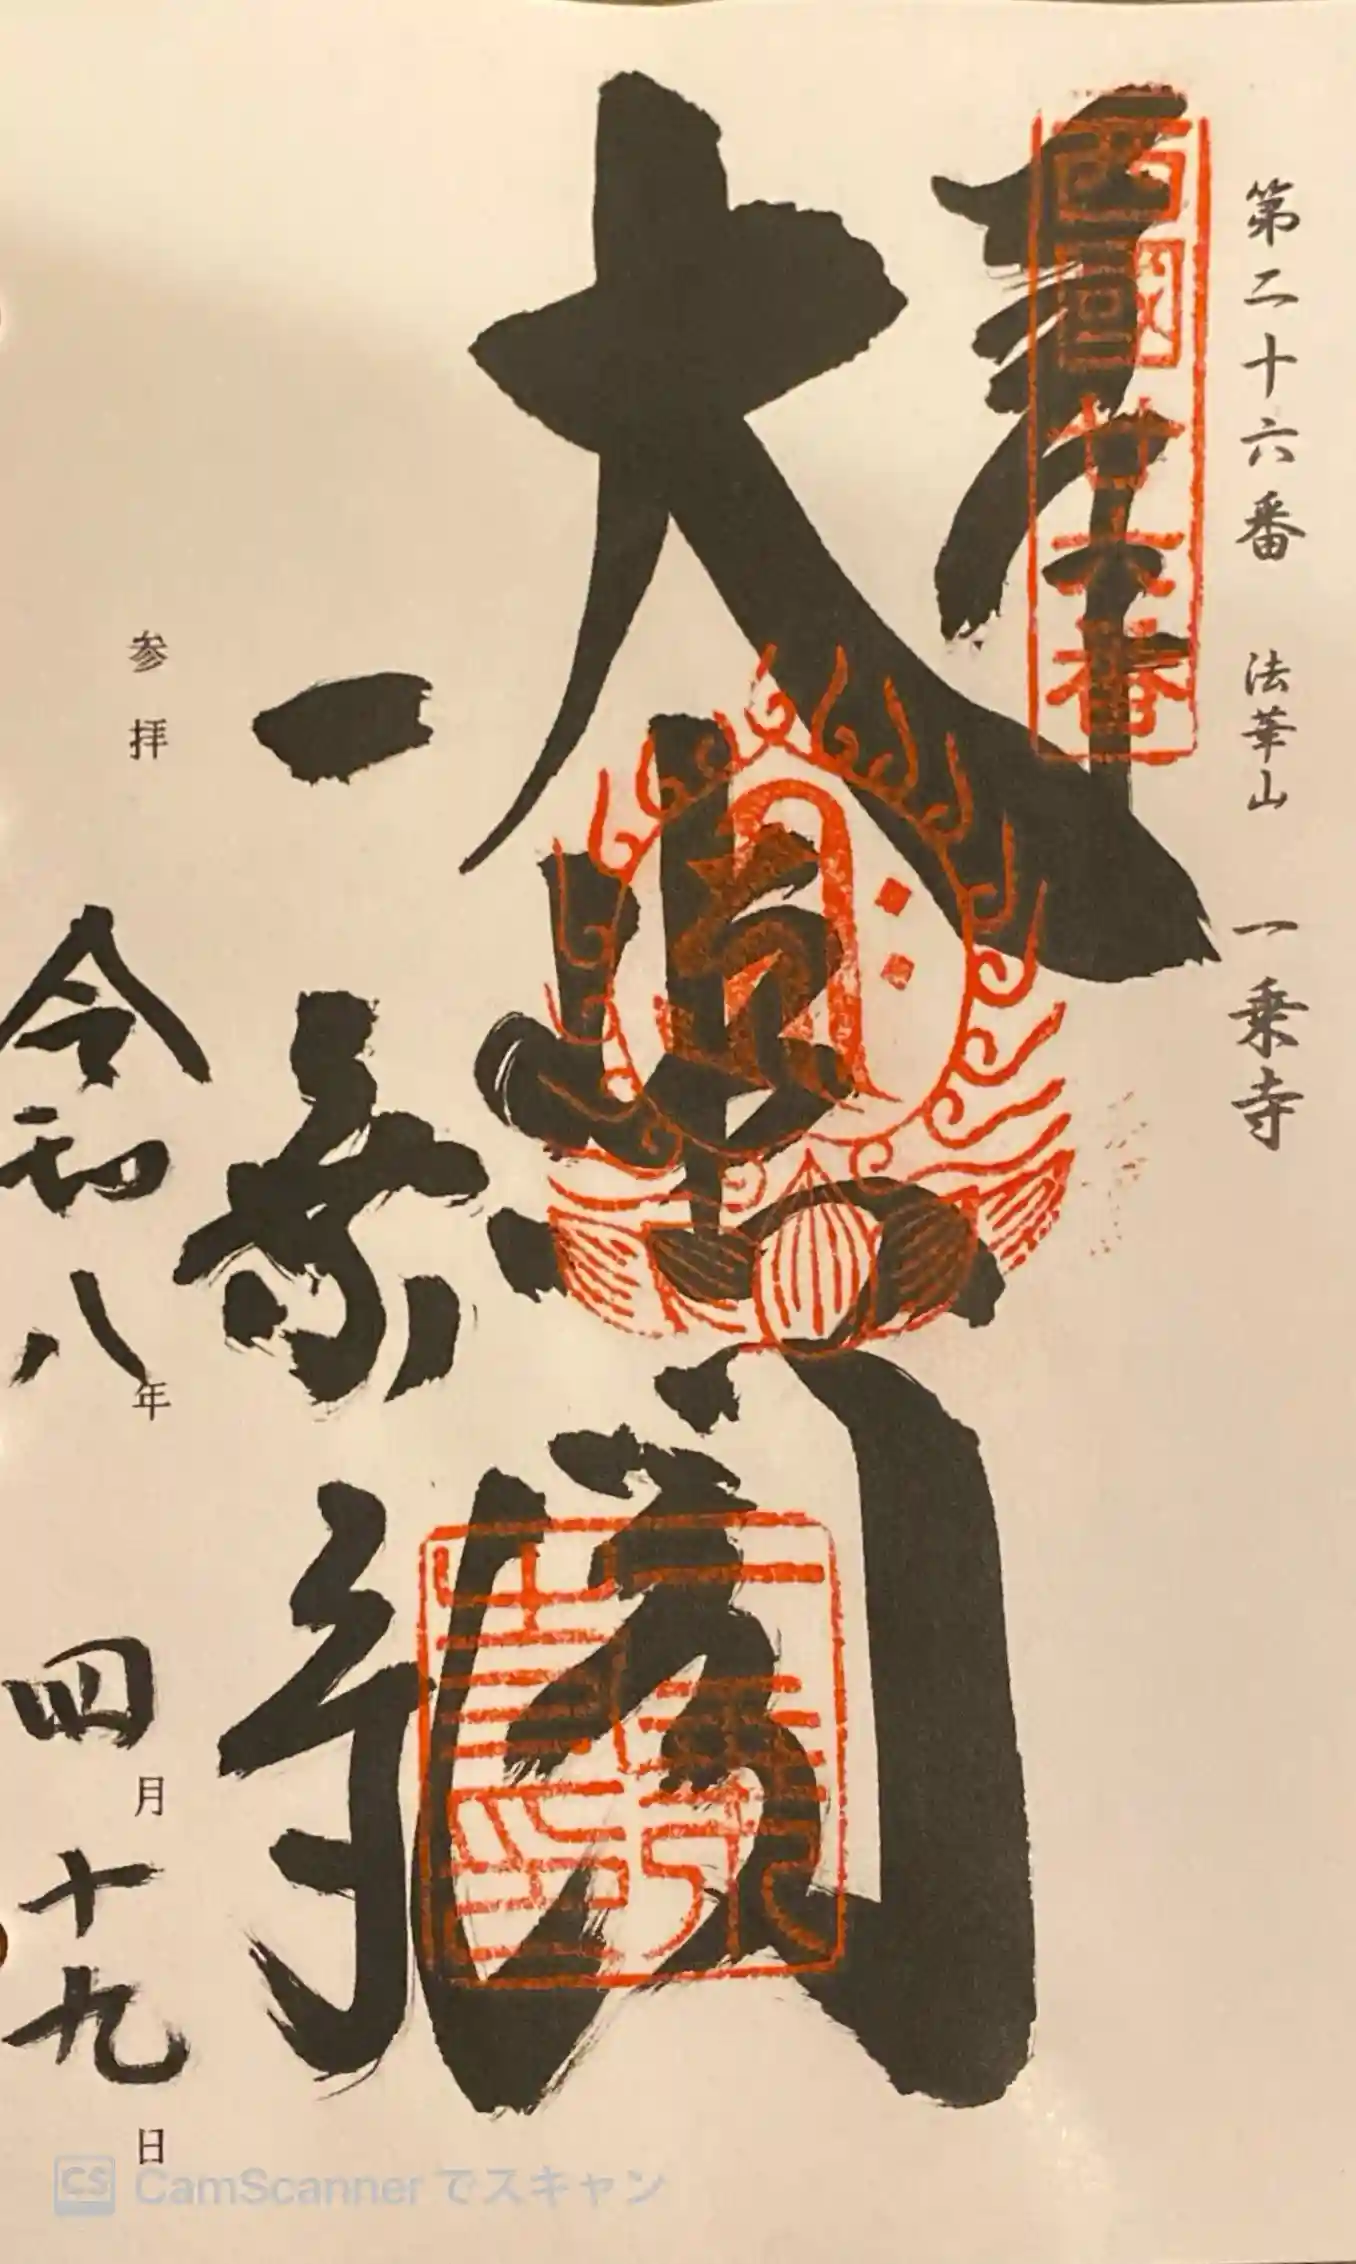 第二十六番 法華山 一乗寺
奉拝
西國廿六番
大悲閣
一乗寺
一乗寺印
参拝 令和八年 四月十九日
CS CamScanner でスキャン